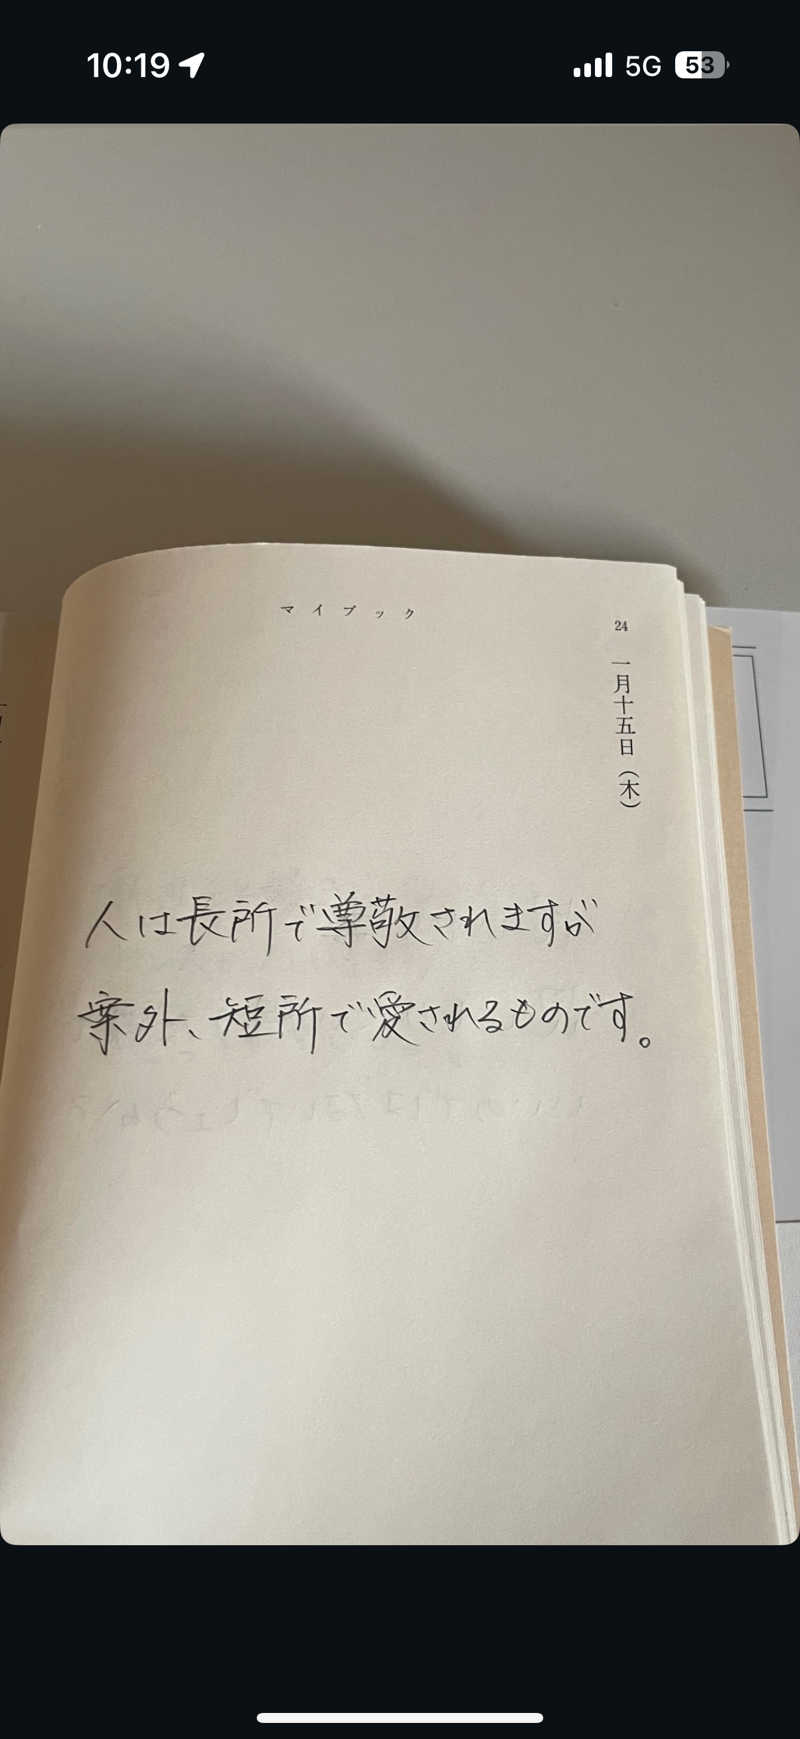 10:19
5G
53
マイブック
24
一月十五日（木）
人は長所で尊敬されますが
案外、短所で愛されるものです。